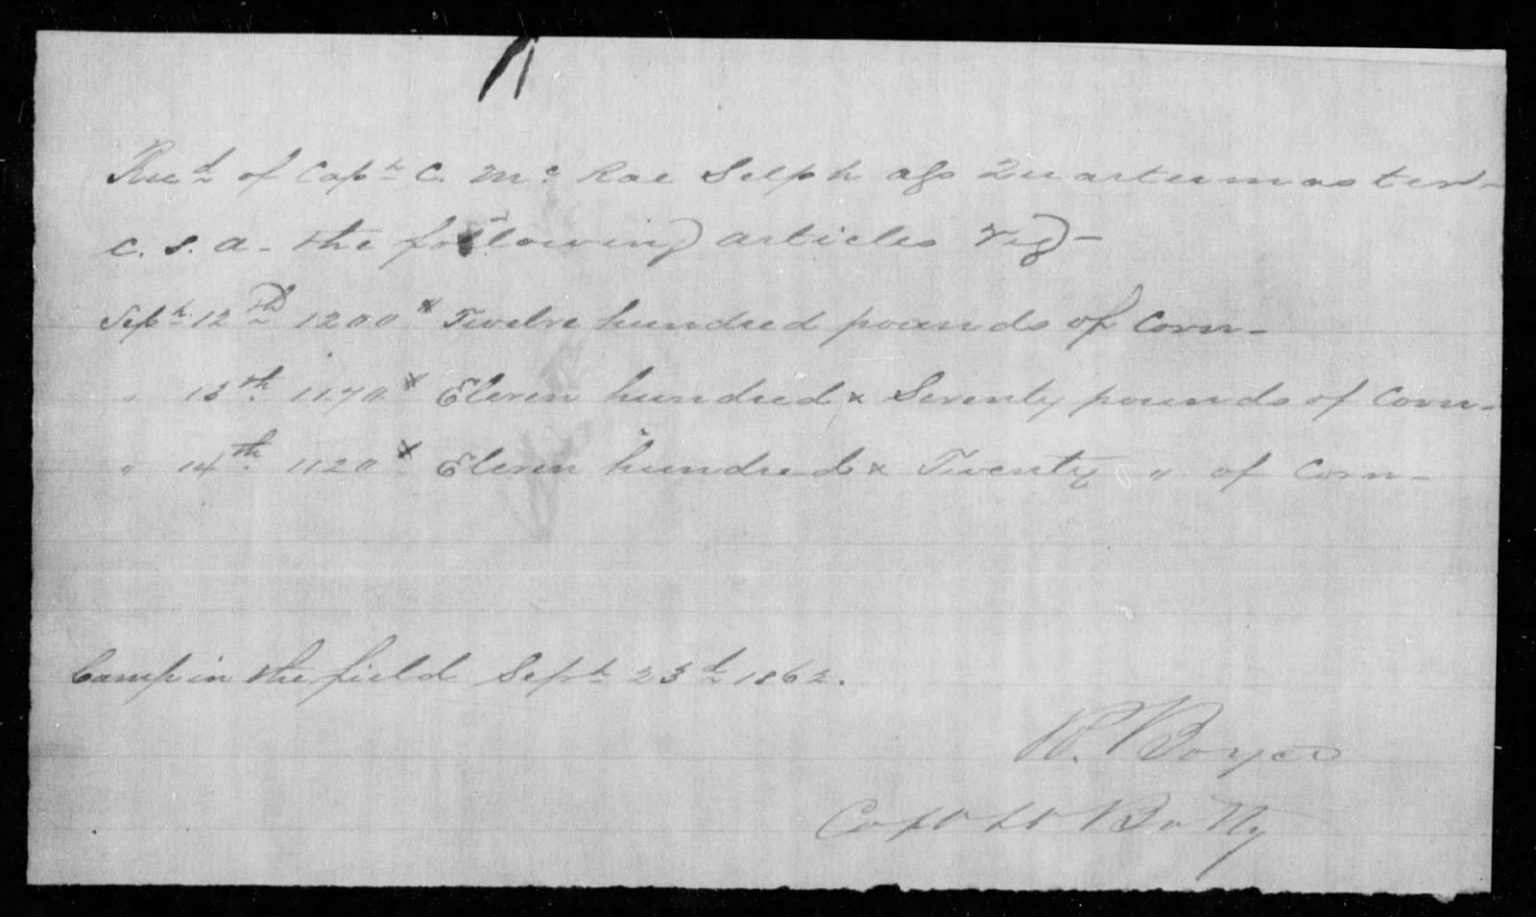 Rec^d of Cap^t C. M^c Rae Selph ass Quartermaster-
C. S. A - the following articles Viz -
Sep^t 12^th 1200 # Twelve hundred pounds of Corn -
" 13^th 1170 # Eleven hundred & Seventy pounds of Corn -
" 14^th 1120 # Eleven hundred & Twenty " of Corn -
Camp in the field Sep^t 23^d 1862.
R. Boyce
Capt Lt Batty